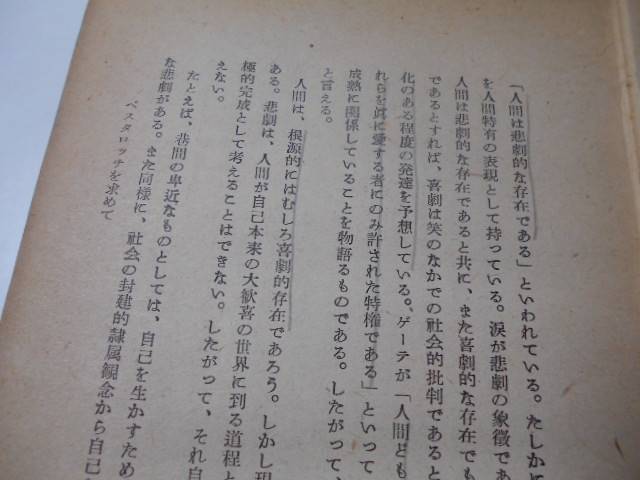 「人間は悲劇的な存在である」といわれている。たしかに
を人間特有の表現として持っている。涙が悲劇の象徴であ
人間は悲劇的な存在であると共に、また喜劇的な存在でも
であるとすれば、喜劇は笑のなかでの社会的批判であると
化のある程度の発達を予想している。ゲーテが「人間ども
れらを眞に愛する者にのみ許された特権である」といって
成熟に関係していることを物語るものである。したがって、
と言える。
人間は、根源的にはむしろ喜劇的存在であろう。しかし現
ある。悲劇は、人間が自己本来の大歓喜の世界に到る道程と
極的完成として考えることはできない。したがって、それ自
えない。
たとえば、巷間の卑近なものとしては、自己を生かすため
な悲劇がある。また同様に、社会の封建的隷属観念から自己
ペスタロッチを求めて